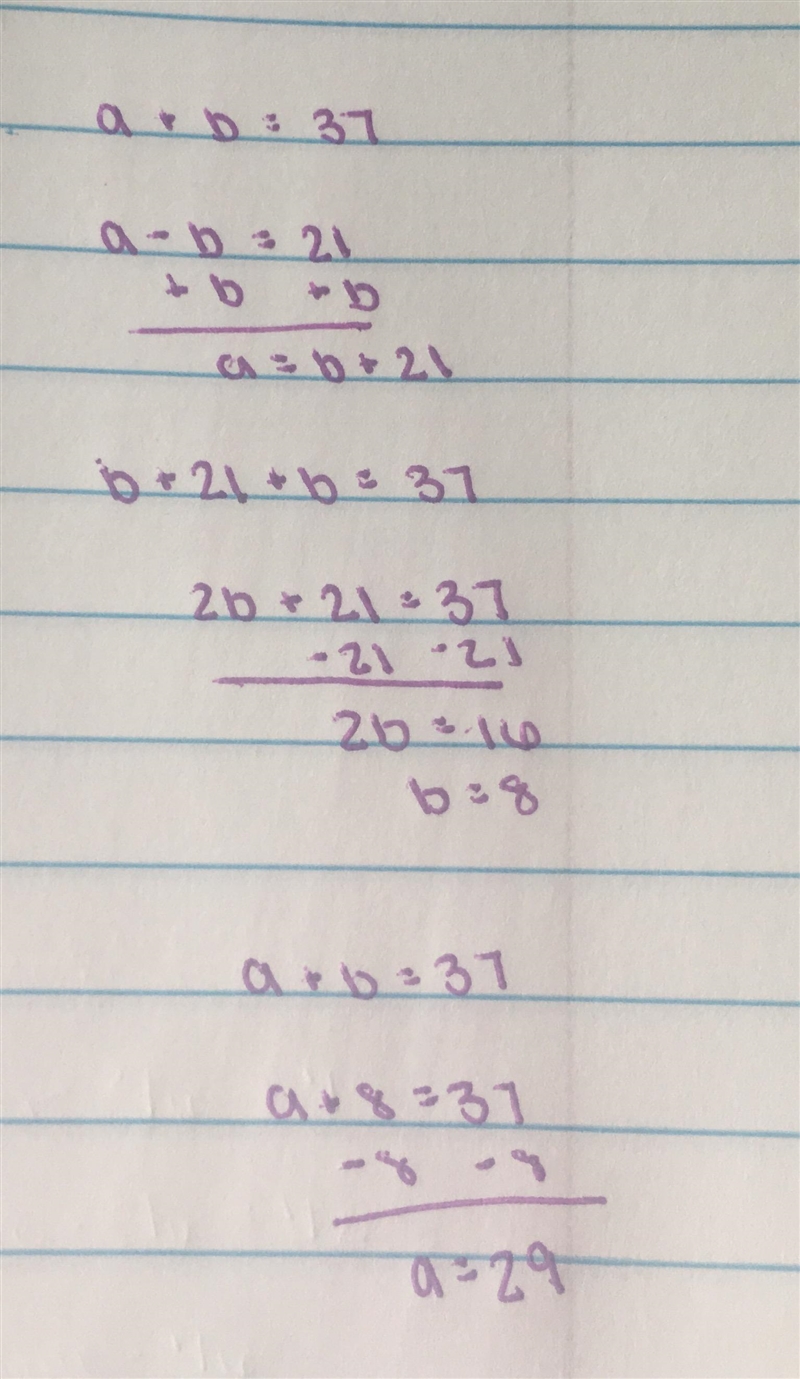 a + b = 37
a - b = 21
+ b + b
a = b + 21
b + 21 + b = 37
2b + 21 = 37
-21 -21
2b = 16
b = 8
a + b = 37
a + 8 = 37
-8 -8
a = 29